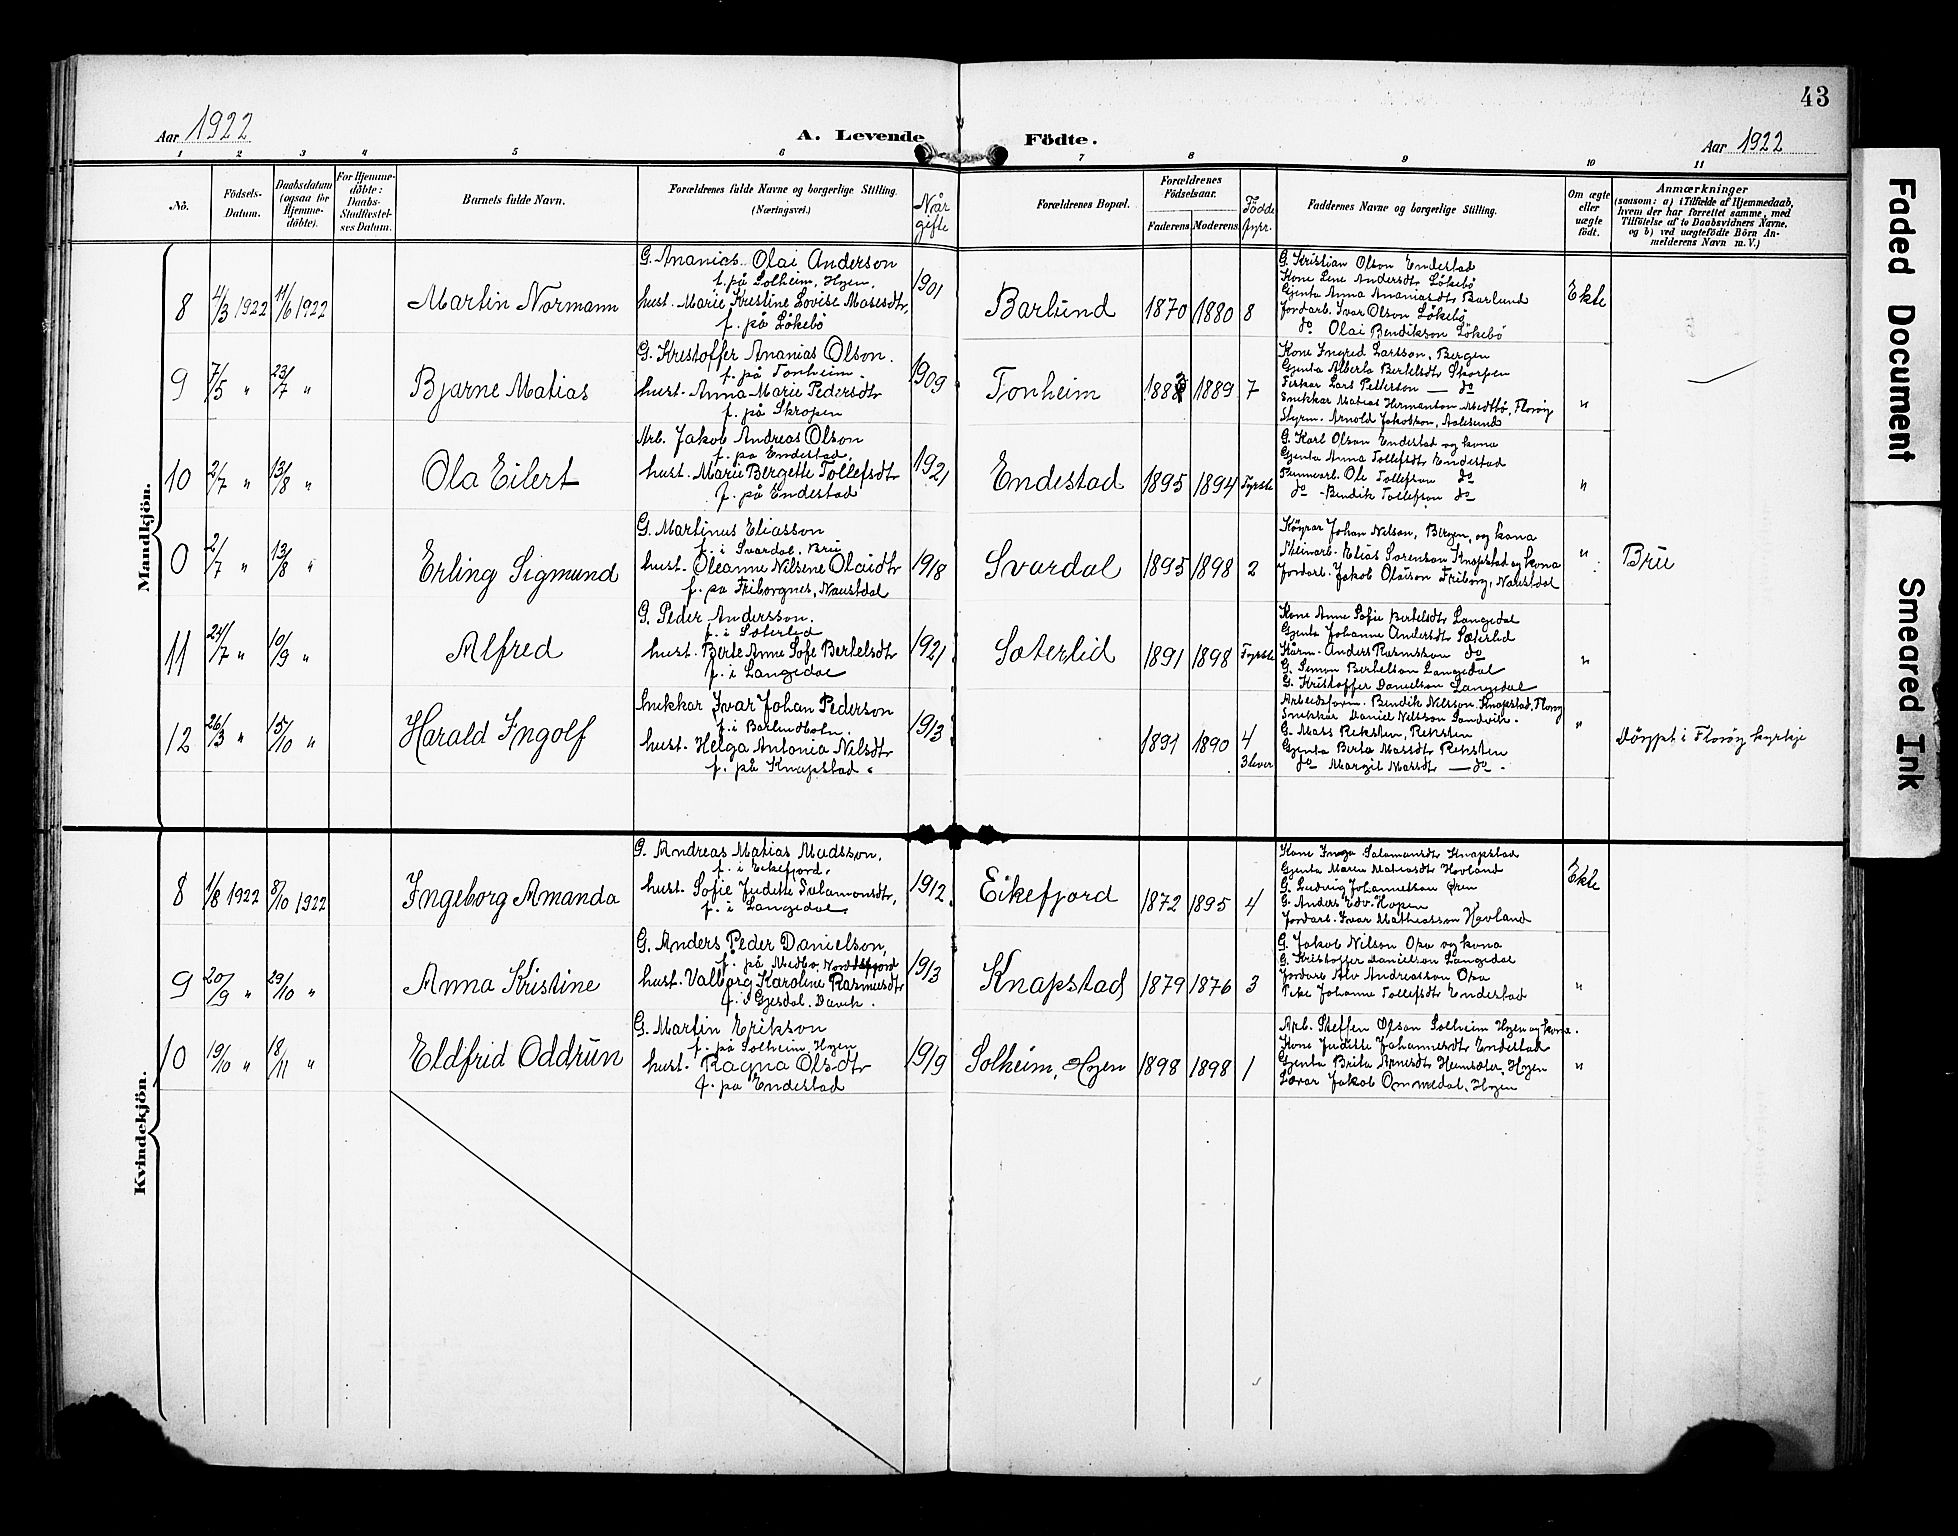 43
Aar 1922
A. Levende Födte.
Aar 1922
1 2 3 4 5 6 7 8 9 10 11
Nö.
Födsels-Datum.
Daabsdatum (ogsaa for Hjemme-döbte).
For Hjemme-döbte: Daabs-Stadfæstel-ses Datum.
Barnets fulde Navn.
Forældrenes fulde Navne og borgerlige Stilling. (Næringsvei.)
Når gifte
Forældrenes Bopæl.
Forældrenes Födselsaar.
Faderens Moderens
Fødde
Faddernes Navne og borgerlige Stilling.
Om ægte eller uægte födt.
Anmærkninger
(saasom: a) i Tilfælde af Hjemmedaab, hvem der har forrettet samme, med Tilföielse af to Daabsvidners Navne, og b) ved uægtefödte Börn An-melderens Navn m. V.)
Mandkjön.
8 4/3 1922 11/6 1922 Martin Normann
G. Ananias Olai Anderson
f. på Solheim, Hyen.
hust. Marie Kristine Lovise Masesdtr,
f. på Lökebö
1901 Barlund 1870 1880 8
G. Kristian Olson Endestad
Kone Lene Andersdtr Lökebö
Gjenta Anna Ananiasdtr Barlund
Jordarb. Ivar Olson Lökebö
do Olai Bendikson Lökebö
Ekte
9 7/5 " 23/7 " Bjarne Matias
G. Kristoffer Ananias Olson.
f. på Tonheim.
hust. Anna Marie Pedersdtr
f. på Skropen
1909 Tonheim 1883 1889 7
Kone Ingred Larsson, Bergen
Gjenta Alberta Bertelsdtr Skorpen
Fiskar Lars Petterson — do
Snekkar Matias Hermanson Medbö, Floröy
Styrm. Arnold Jakobson, Aalesund
"
10 2/7 " 13/8 " Ola Eilert
Arb. Jakob Andreas Olson
f. på Endestad.
hust. Marie Bergette Tollefsdtr
f. på Endestad
1921 Endestad 1895 1894 Fyrste
G. Karl Olson Endestad og kona
Gjenta Anna Tollefsdtr Endestad
Ole Tollefson do
do - Bendik Tollefson do
"
0 2/7 " 13/8 " Erling Sigmund
G. Martinus Eliasson
f. i Svardal, Bru
hust. Oleanne Nilsene Olaidtr
f. på Friborgnes, Naustdal
1918 Svardal 1895 1898 2
Köyrar Johan Nilson, Bergen, og kona
Elias Sorenson Knapstad og kona
Jordarb. Jakob Olaison Friborg, Naustdal
" Bru
11 24/7 " 10/9 " Alfred
G. Peder Andersson.
f. i Sæterlid
hust. Berte Anne Sofe Bertelsdtr
f. i Langedal
1921 Sæterlid 1891 1898 Fyrste
Kone Anne Sofie Bertelsdtr Langedal
Gjenta Johanne Andersdtr Sæterlid
Kårm. Anders Rasmusson do
G. Simon Bertelson Langedal
G. Kristoffer Danielson Langedal
"
12 26/3 " 15/10 " Harald Ingolf
Snekkar Ivar Johan Pederson
f. i Barlindbotn.
hust. Helga Antonia Nilsdtr
f. på Knapstad.
1913 1891 1890 4
3 lever
Arbeidsform. Bendik Nilsson Knapstad, Floröy
Snekkar Daniel Nilsson Sandvik.
G. Mass Reksten, Reksten
Gjenta Berta Massdtr Reksten
do Margit Massdtr — do.
" döypt i Floröy kyrkje
Kvindekjön.
8 1/8 1922 8/10 1922 Ingeborg Amanda
G. Andreas Matias Madsson,
f. i Eikefjord.
hust. Sofie Judette Salamonsdtr,
f. i Langedal.
1912 Eikefjord 1872 1895 4
Kone Inga Salamonsdtr Knapstad
Gjenta Maren Matiasdtr Hovland
G. Ludvig Johannesson Øren
G. Anders Edv. Hopen
Jordarb. Ivar Mathiasson Hovland
Ekte
9 20/9 " 29/10 " Anna Kristine
G. Anders Peder Danielson,
f. på Medbo, Nordalfjord
hust. Valborg Karoline Rasmusdtr
f. i Gjesdal, Davik.
1913 Knapstad 1879 1876 3
G. Jakob Nilson Osa og kona
G. Kristoffer Danielson Langedal
Jordarb. Alv Andreasson Osa
Johanne Tollefsdtr Endestad
"
10 19/10 " 18/11 " Eldfrid Oddrun
G. Martin Erikson
f. på Solheim, Hyen
hust. Ragna Olsdtr
f. på Endestad
1919 Solheim, Hyen 1898 1898 1
Arb. Steffen Olson Solheim Hyen og kona.
Kone Judette Johannesdtr Endestad
Gjenta Brita Arnesdtr Heimsæter, Hyen
Lærar Jakob Ommedal, Hyen
"
Faded Document
Smeared Ink